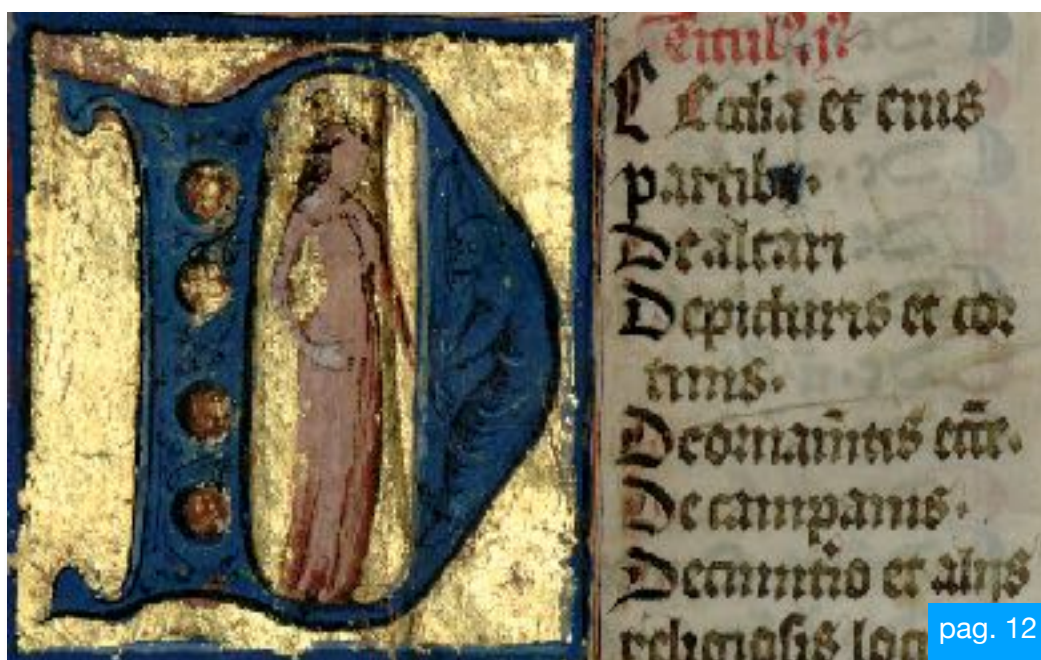 Titulꝰ
Ecclia et eius
partibꝰ.
De altari
De picturis et cor
tinis.
De ornam̄tis ecc̄e.
De campanis.
De cimit̓io et alijs
religiosis loc
pag. 12